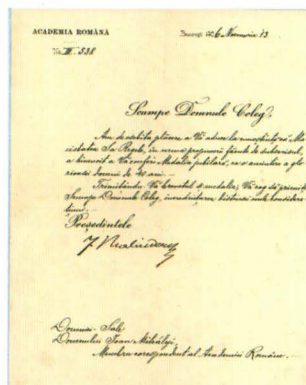 ACADEMIA ROMÂNĂ
No. 538
Scumpe Domnule Coleg,
Am deosebita plăcere a Vă aduce la cunoștință că Ma
iestatea Sa Regele, în urma propunerii făcute de subsemnatul,
a binevoit a Vă conferi Medalia jubiliară,
domnii de 40 ani.
Trimițându-Vă brevetul și medalia, Vă rog să primiți
Scumpe Domnule Coleg, încredințarea distinsei mele considera
țiuni.
Președintele
Domniei-Sale
Domnului Ioan Mihályi,
Membru corespondent al Academiei Române.